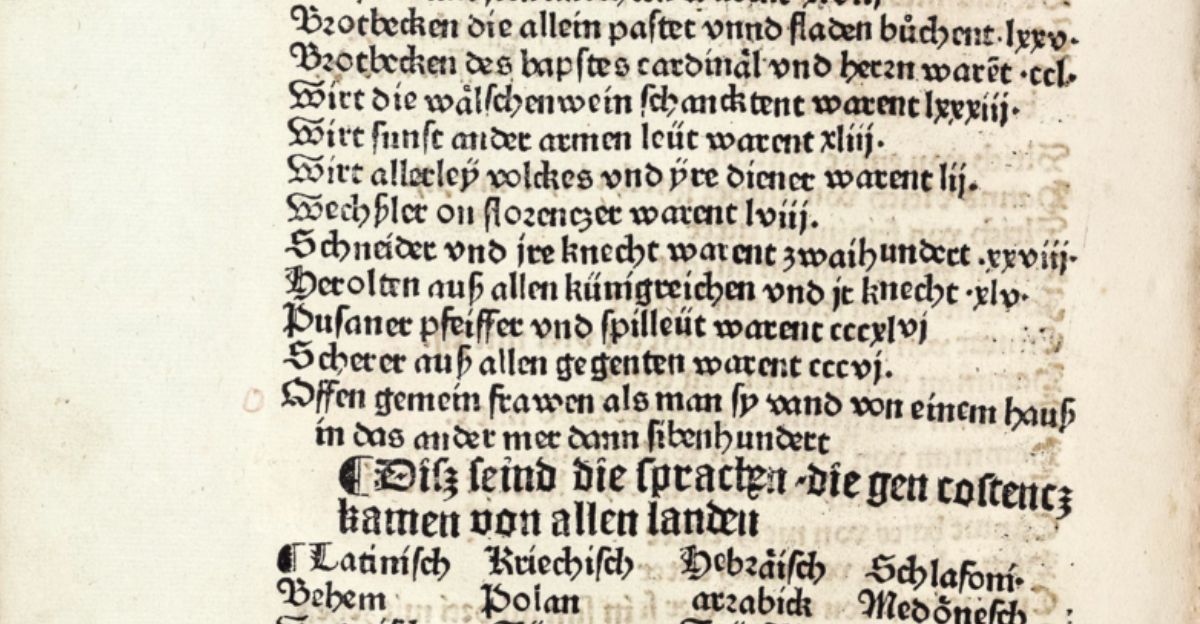 Brotbecken die allein pastet vnnd fladen bůchent·lxxv·
Brotbecken des bapstes cardinål vnd herrn warēt ·ccl·
Wirt die wålschenwein schancktent warent lxxxiij·
Wirt sunst ander armen leüt warent xliij·
Wirt allerleÿ volckes vnd ÿre diener warent lij·
Wechßler on florenczer warent lviij.
Schneider vnd jre knecht warent zwaihundert .xxviij·
Herolten auß allen künigreichen vnd jr knecht ·xlv·
Pusaner pfeiffer vnd spilleüt warent cccxlvj
Scherer auß allen gegenten warent cccvj.
Offen gemein frawen als man sy vand von einem hauß
in das ander mer dann sibenhundert
¶Disz seind die sprachen ·die gen costencz
kamen von allen landen
¶Latinisch Kriechisch Hebråisch Schlafoni·
Behem Polan arzabick Medŏnesch